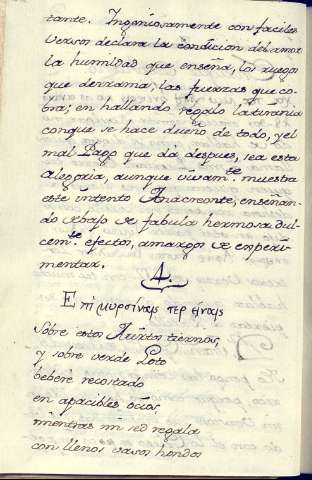 tante. Ingeniosamente con faciles
versos declara la condicion del amor
la humildad que enseña, los ruegos
que derrama; las fuerzas que co-
bra; en hallando regalo la tirania
conque se hace dueño de todo, y el
mal Pago que da despues, sea esta
alegoria, aunque vivam.te muestra
este intento Anacreonte, enseñan-
do abajo de fabula hermosa dul-
cem.te efectos, amargos de experi-
mentar.
4
Επι μυρσίναις τερείναις
Sobre estos Mirtos tiernos,
y sobre verde Loto
beberé recostado
en apacibles ocios,
mientras mi sed regala
con llenos vasos hondos